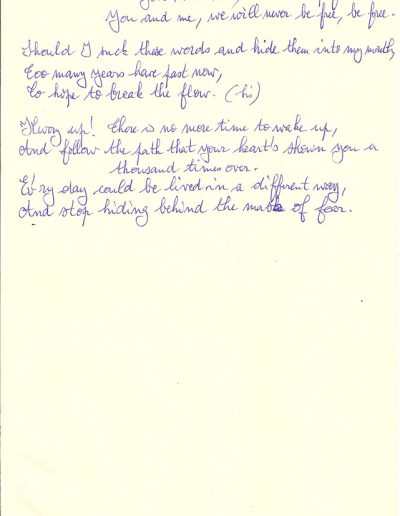 You and me, we will never be free, be free.
Should I suck these words and hide them into my mouth,
Too many years have past now,
To hope to break the flow. (bis)
Hurry up! There is no more time to wake up,
And follow the path that your heart's shown you a
thousand times over.
Ev'ry day could be lived in a different way,
And stop hiding behind the mask of fear.